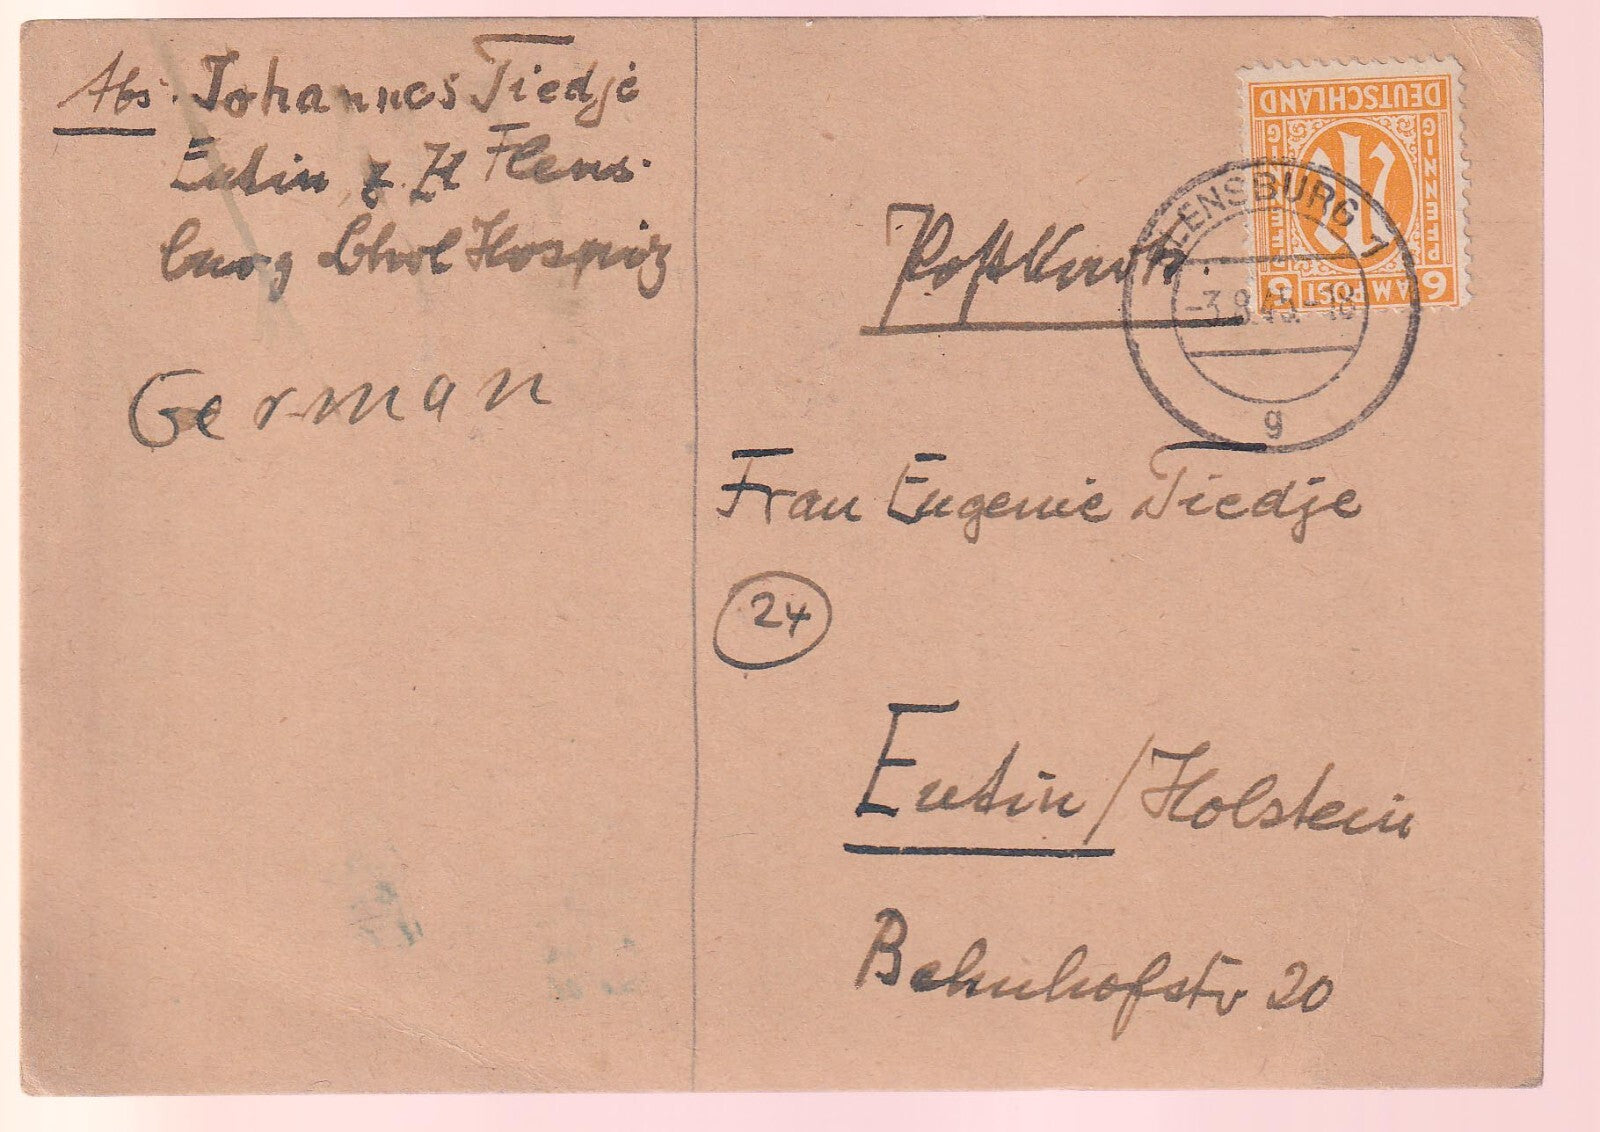 Abs. Johannes Tiedje
Eutin z. Zt Flens-
burg Chr Hospiz
German
Postkarte.
DEUTSCHLAND
PFENNIG
PFENNIG
6 AM POST 6
FLENSBURG 1
-3.9.45.-18
g
Frau Eugenie Tiedje
24
Eutin / Holstein
Bahnhofstr 20